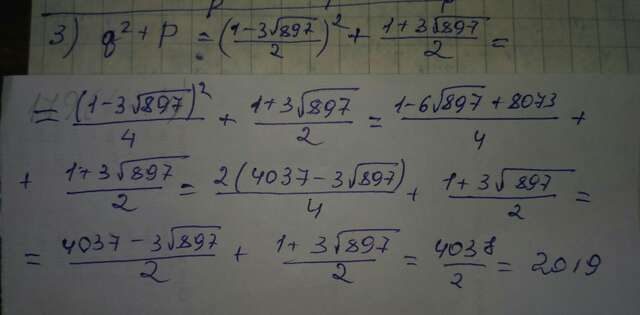 3) q² + p = ((1-3√897)/2)² + (1+3√897)/2 =
= (1-3√897)²/4 + (1+3√897)/2 = (1-6√897+8073)/4 +
+ (1+3√897)/2 = 2(4037-3√897)/4 + (1+3√897)/2 =
= (4037-3√897)/2 + (1+3√897)/2 = 4038/2 = 2019